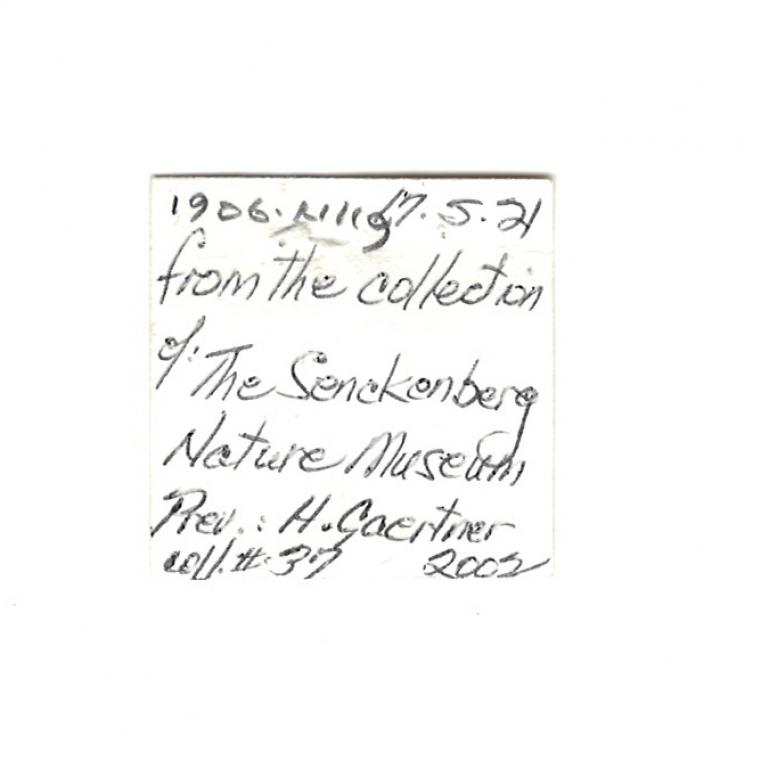 1906. 17.5.21
from the collection
of: The Senckenberg
Nature Museum
Prev.: H. Gaertner
coll. # 37 2002